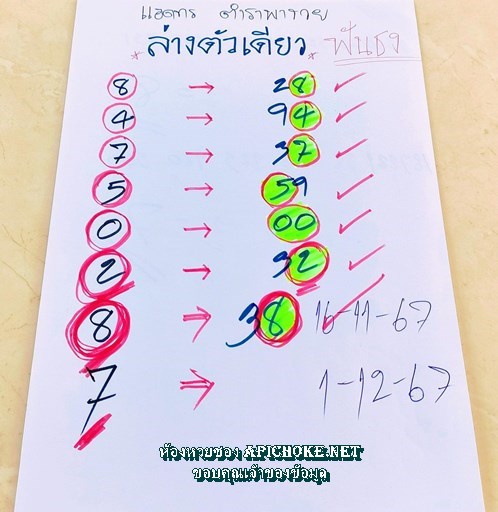 แอดการ ตำราพารวย
*ล่างตัวเดียว* ฟันธง
8 → 28 ✓
4 → 94 ✓
7 → 37 ✓
5 → 59 ✓
0 → 00 ✓
2 → 32 ✓
8 → 38 16-11-67
7 → 1-12-67
ห้องหวยซอง APICHOKE.NET
ขอบคุณเจ้าของข้อมูล